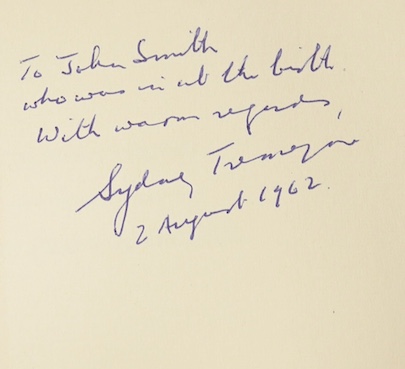 To John Smith
who was in at the birth.
With warm regards,
Sydney Tremayne
2 August 1962.